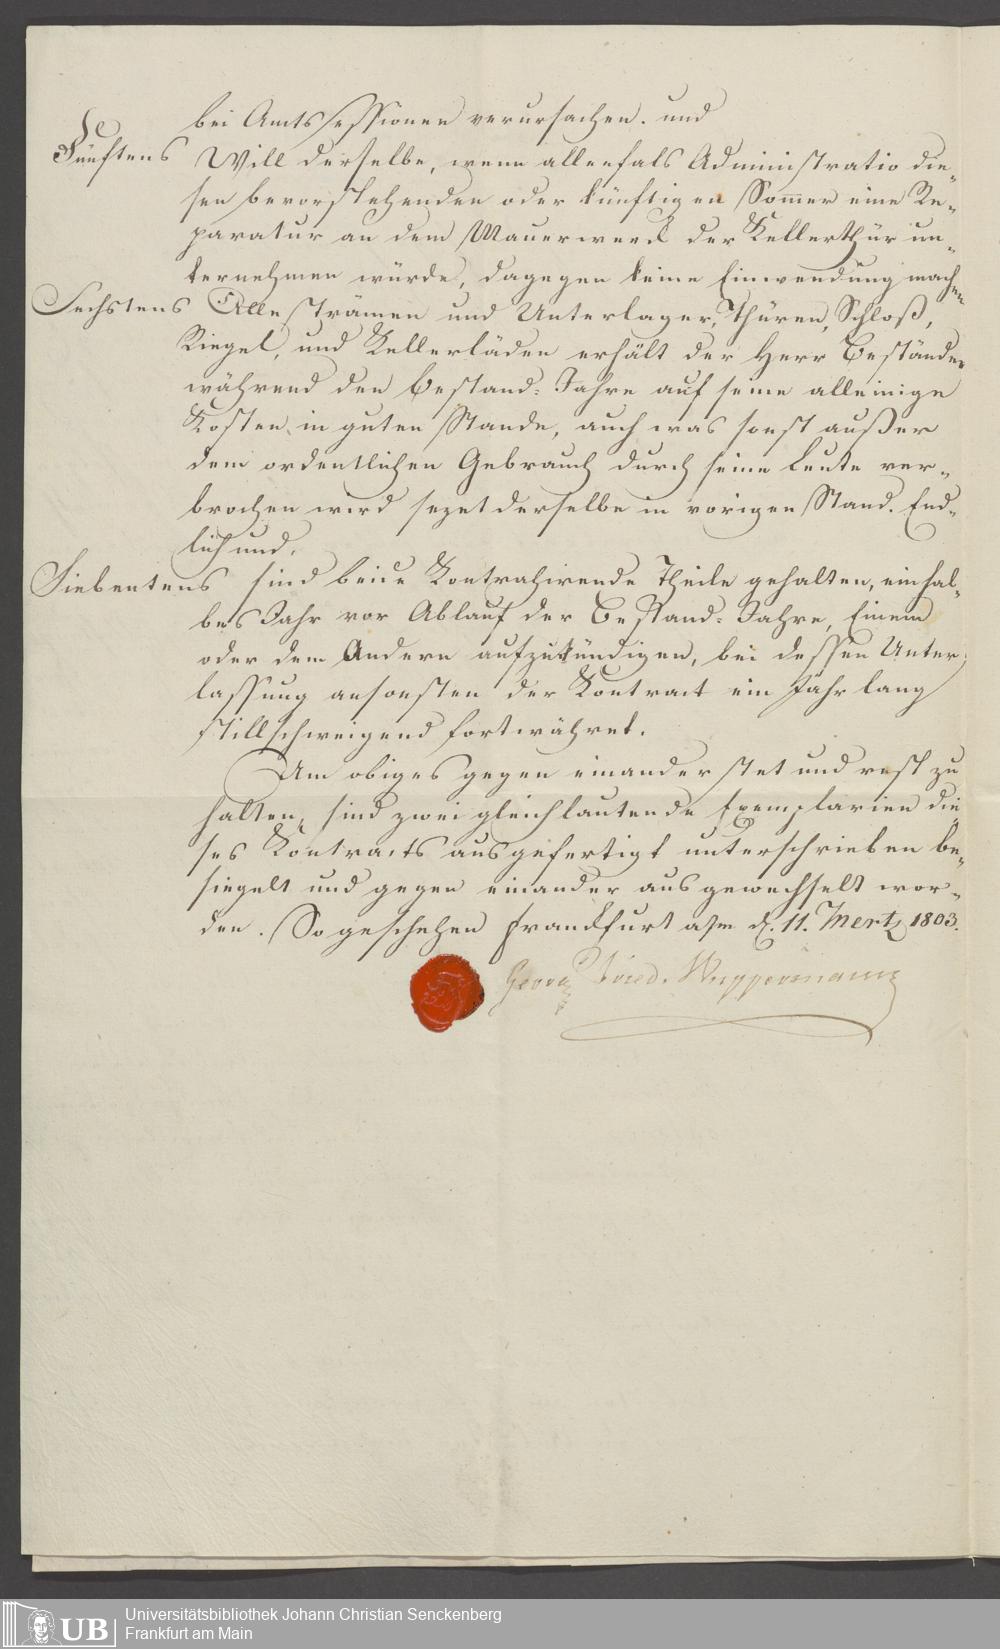 bei Amtssessionen verursachen. und
Fünftens Will derselbe, wenn allenfals Administratio die-
sen bevorstehenden oder künftigen Sommer eine Re-
paratur an dem Mauerwerck der Kellerthür un-
ternehmen würde, dagegen keine Einwendung machen
Sechstens Alle Strämen und Unterlager, Thüren, Schloß,
Riegel, und Kellerläden erhält der Herr Beständer
während den Bestand: Jahre auf seine alleinige
Kosten in guten Stande, auch was sonst außer
dem ordentlichen Gebrauch durch seine Leute ver-
brochen wird sezet derselbe in vorigen Stand. End-
lich und.
Siebentens sind beide Kontrahirende Theile gehalten, ein hal-
bes Jahr vor Ablauf der Bestand: Jahre, Einem
oder dem Andern aufzukündigen, bei dessen Unter-
lassung ansonsten der Kontract ein Jahr lang
stillschweigend fortwähret.
Um obiges gegen einander stet und vest zu
halten, sind zwei gleichlautende Exemplarien die-
ses Kontracts ausgefertigt unterschrieben be-
siegelt und gegen einander ausgewechselt wor-
den. So geschehen Franckfurt a/m d. 11. Mertz 1803.
Georg Fried. Wuppermann
UB
Universitätsbibliothek Johann Christian Senckenberg
Frankfurt am Main